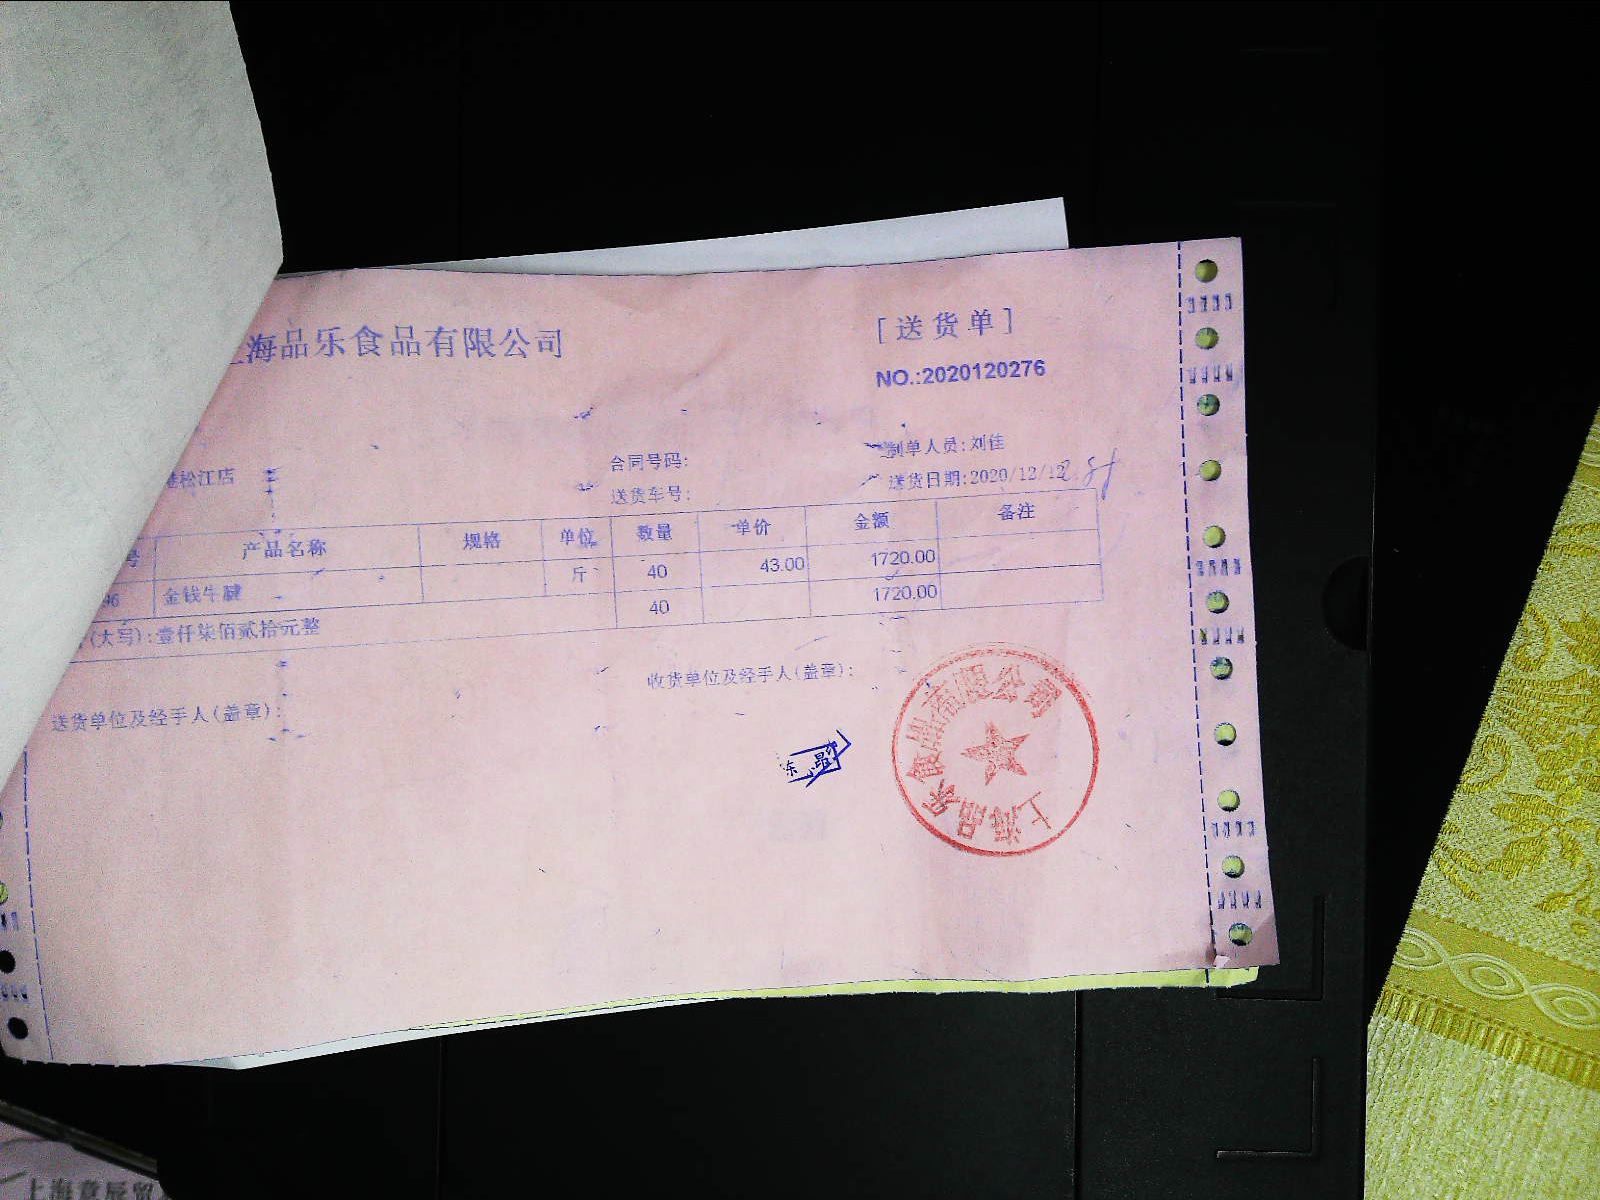 海品乐食品有限公司
[送货单]
NO.:2020120276
制单人员:刘佳
合同号码:
松江店
送货日期:2020/12/12
送货车号:
号 产品名称 规格 单位 数量 单价 金额 备注
96 金钱牛腱 斤 40 43.00 1720.00
40 1720.00
(大写):壹仟柒佰贰拾元整
收货单位及经手人(盖章):
送货单位及经手人(盖章):
上海品乐食品有限公司
上海意辰贸